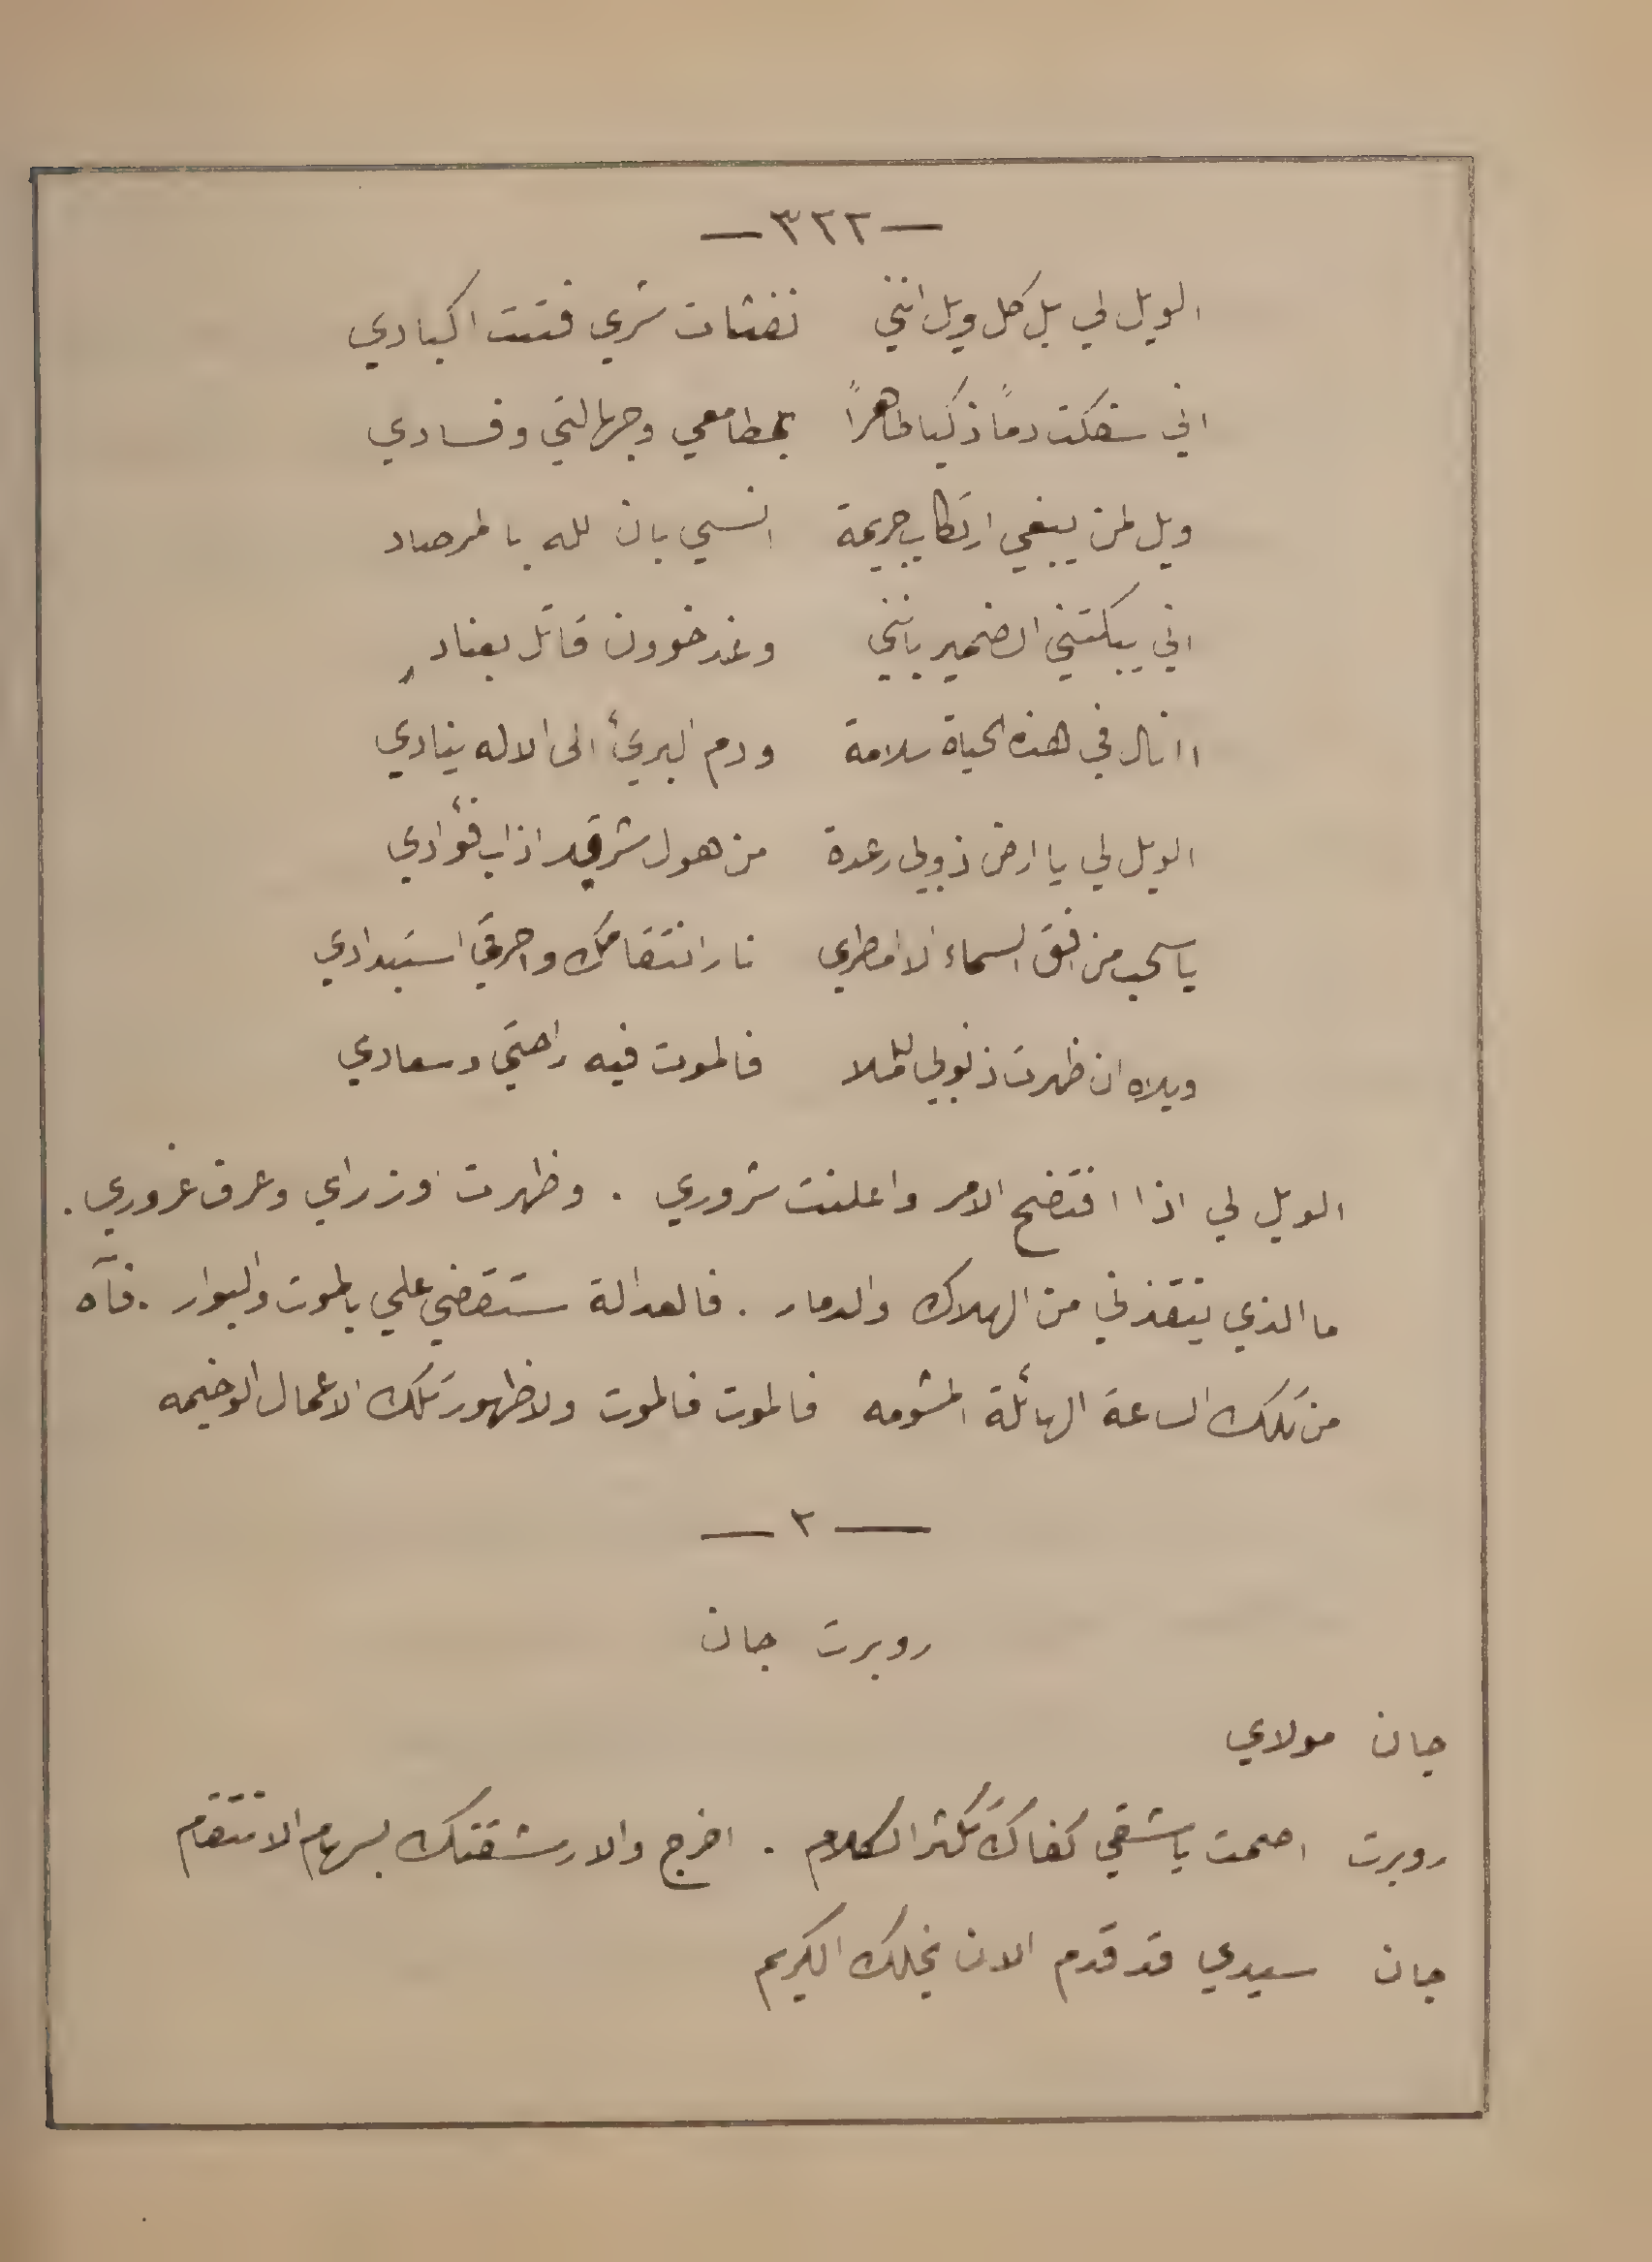 — ٣٢٢ —
الويل لي بل كل ويل انني نفثات شري فتتت اكبادي
اني سفكت دماً ذكيا طاهراً بمطامعي وجهالتي وفسادي
ويل لمن يبغي ارتكاب جريمة انسي بان لله بالمرصاد
اني يبكتني الضمير بانني وغد خوون قاتل بعناد
اانال في هذه الحياة سلامة ودم البريُ الى الاله ينادي
الويل لي يا ارض ذوبي رعدة من هول شر قد اذاب فؤادي
يا سحب من افق السماء الا امطري نار انتقامك واحرقي استبدادي
ويلاه ان ظهرت ذنوبي للملا فالموت فيه راحتي وسعادي
الويل لي اذا افتضح الامر واعلنت شروري . وظهرت اوزراي وعرف غروري .
ما الذي ينقذني من الهلاك والدمار . فالعدالة ستقضي علي بالموت والبوار . فآه
من تلك الساعة الهائلة المشومه فالموت فالموت ولا ظهور تلك الاعمال الوخيمه
— ٢ —
روبرت جان
جان مولاي
روبرت اصمت يا شقي كفاك تكثر الكلام . اخرج والا رشقتك بسهام الانتقام
جان سيدي قد قدم الان نجلك الكريم